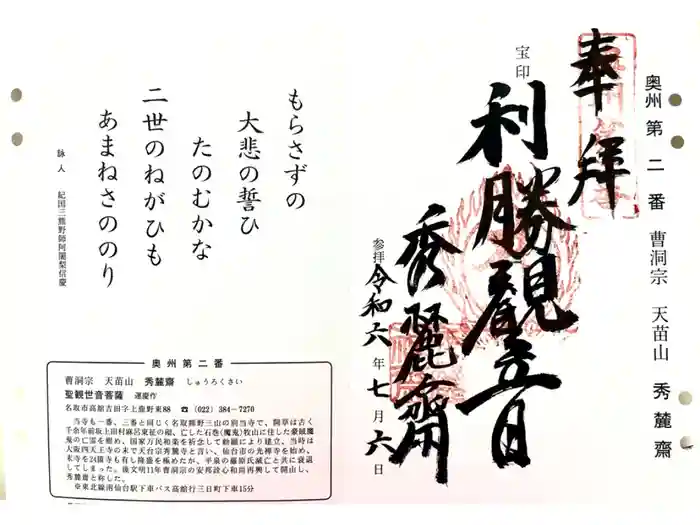 奥州第二番 曹洞宗 天苗山 秀麓齋
奉拝
宝印
利勝觀音
秀麗齋
参拝令和六年七月六日
もらさずの
大悲の誓ひ
たのむかな
二世のねがひも
あまねさののり
詠人 紀国三熊野師阿闍梨信慶
奥州第二番
曹洞宗 天苗山 秀麓齋 しゅうろくさい
聖観世音菩薩 運慶作
名取市高舘吉田字上鹿野東88 ☎ (022) 384-7270
当寺も一番、三番と同じく名取熊野三山の別当寺で、開草は古く
千余年前坂上田村麻呂東征の砌、亡した石巻(魔鬼)牧山に住した豪賊魔
鬼の亡霊を慰め、国家万民和楽を祈念して勅願により建立、当時は
大阪四天王寺の末で天台宗秀麓寺と言い、仙台市の光禅寺を始め、
末寺を24箇寺も有し隆盛を極めたが、平泉の藤原氏滅亡と共に衰退
してしまった。後文明11年曹洞宗の安邦詮心和尚再興して開山し、
秀麓齋と称した。
※東北線南仙台駅下車バス高舘行三日町下車15分